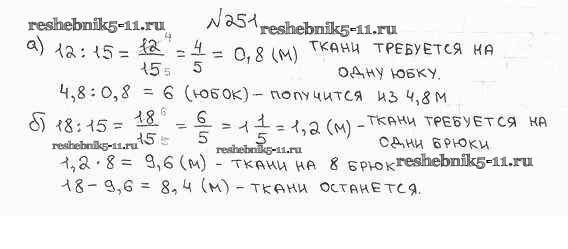 №251
reshebnik5-11.ru reshebnik5-11.ru
а) 12 : 15 = 12/15 4 5 = 4/5 = 0,8 (м) ткани требуется на
одну юбку.
4,8 : 0,8 = 6 (юбок) – получится из 4,8 м
б) 18 : 15 = 18/15 6 5 = 6/5 = 1 1/5 = 1,2 (м) – ткани требуется на
одни брюки.
reshebnik5-11.ru reshebnik5-11.ru
1,2 · 8 = 9,6 (м) – ткани на 8 брюк reshebnik5-11.ru
18 – 9,6 = 8,4 (м) – ткани останется.